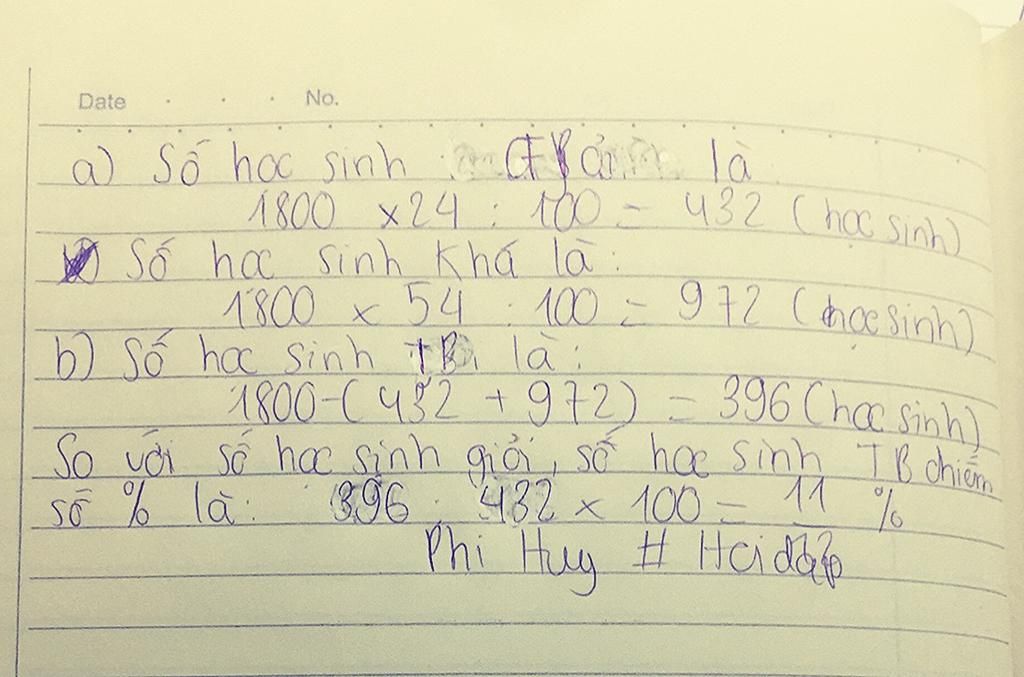 Date No.
a) Số học sinh là
1800 x 24 : 100 = 432 (học sinh)
Số học sinh khá là:
1800 x 54 : 100 = 972 (học sinh)
b) Số học sinh TB là:
1800-(432 + 972) = 396 (học sinh)
So với số học sinh giỏi, số học sinh TB chiếm
số % là: 396 : 432 x 100 = 11 %
Phi Huy #